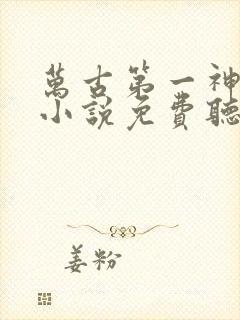 萬古第一神
小說免費聽
姜粉